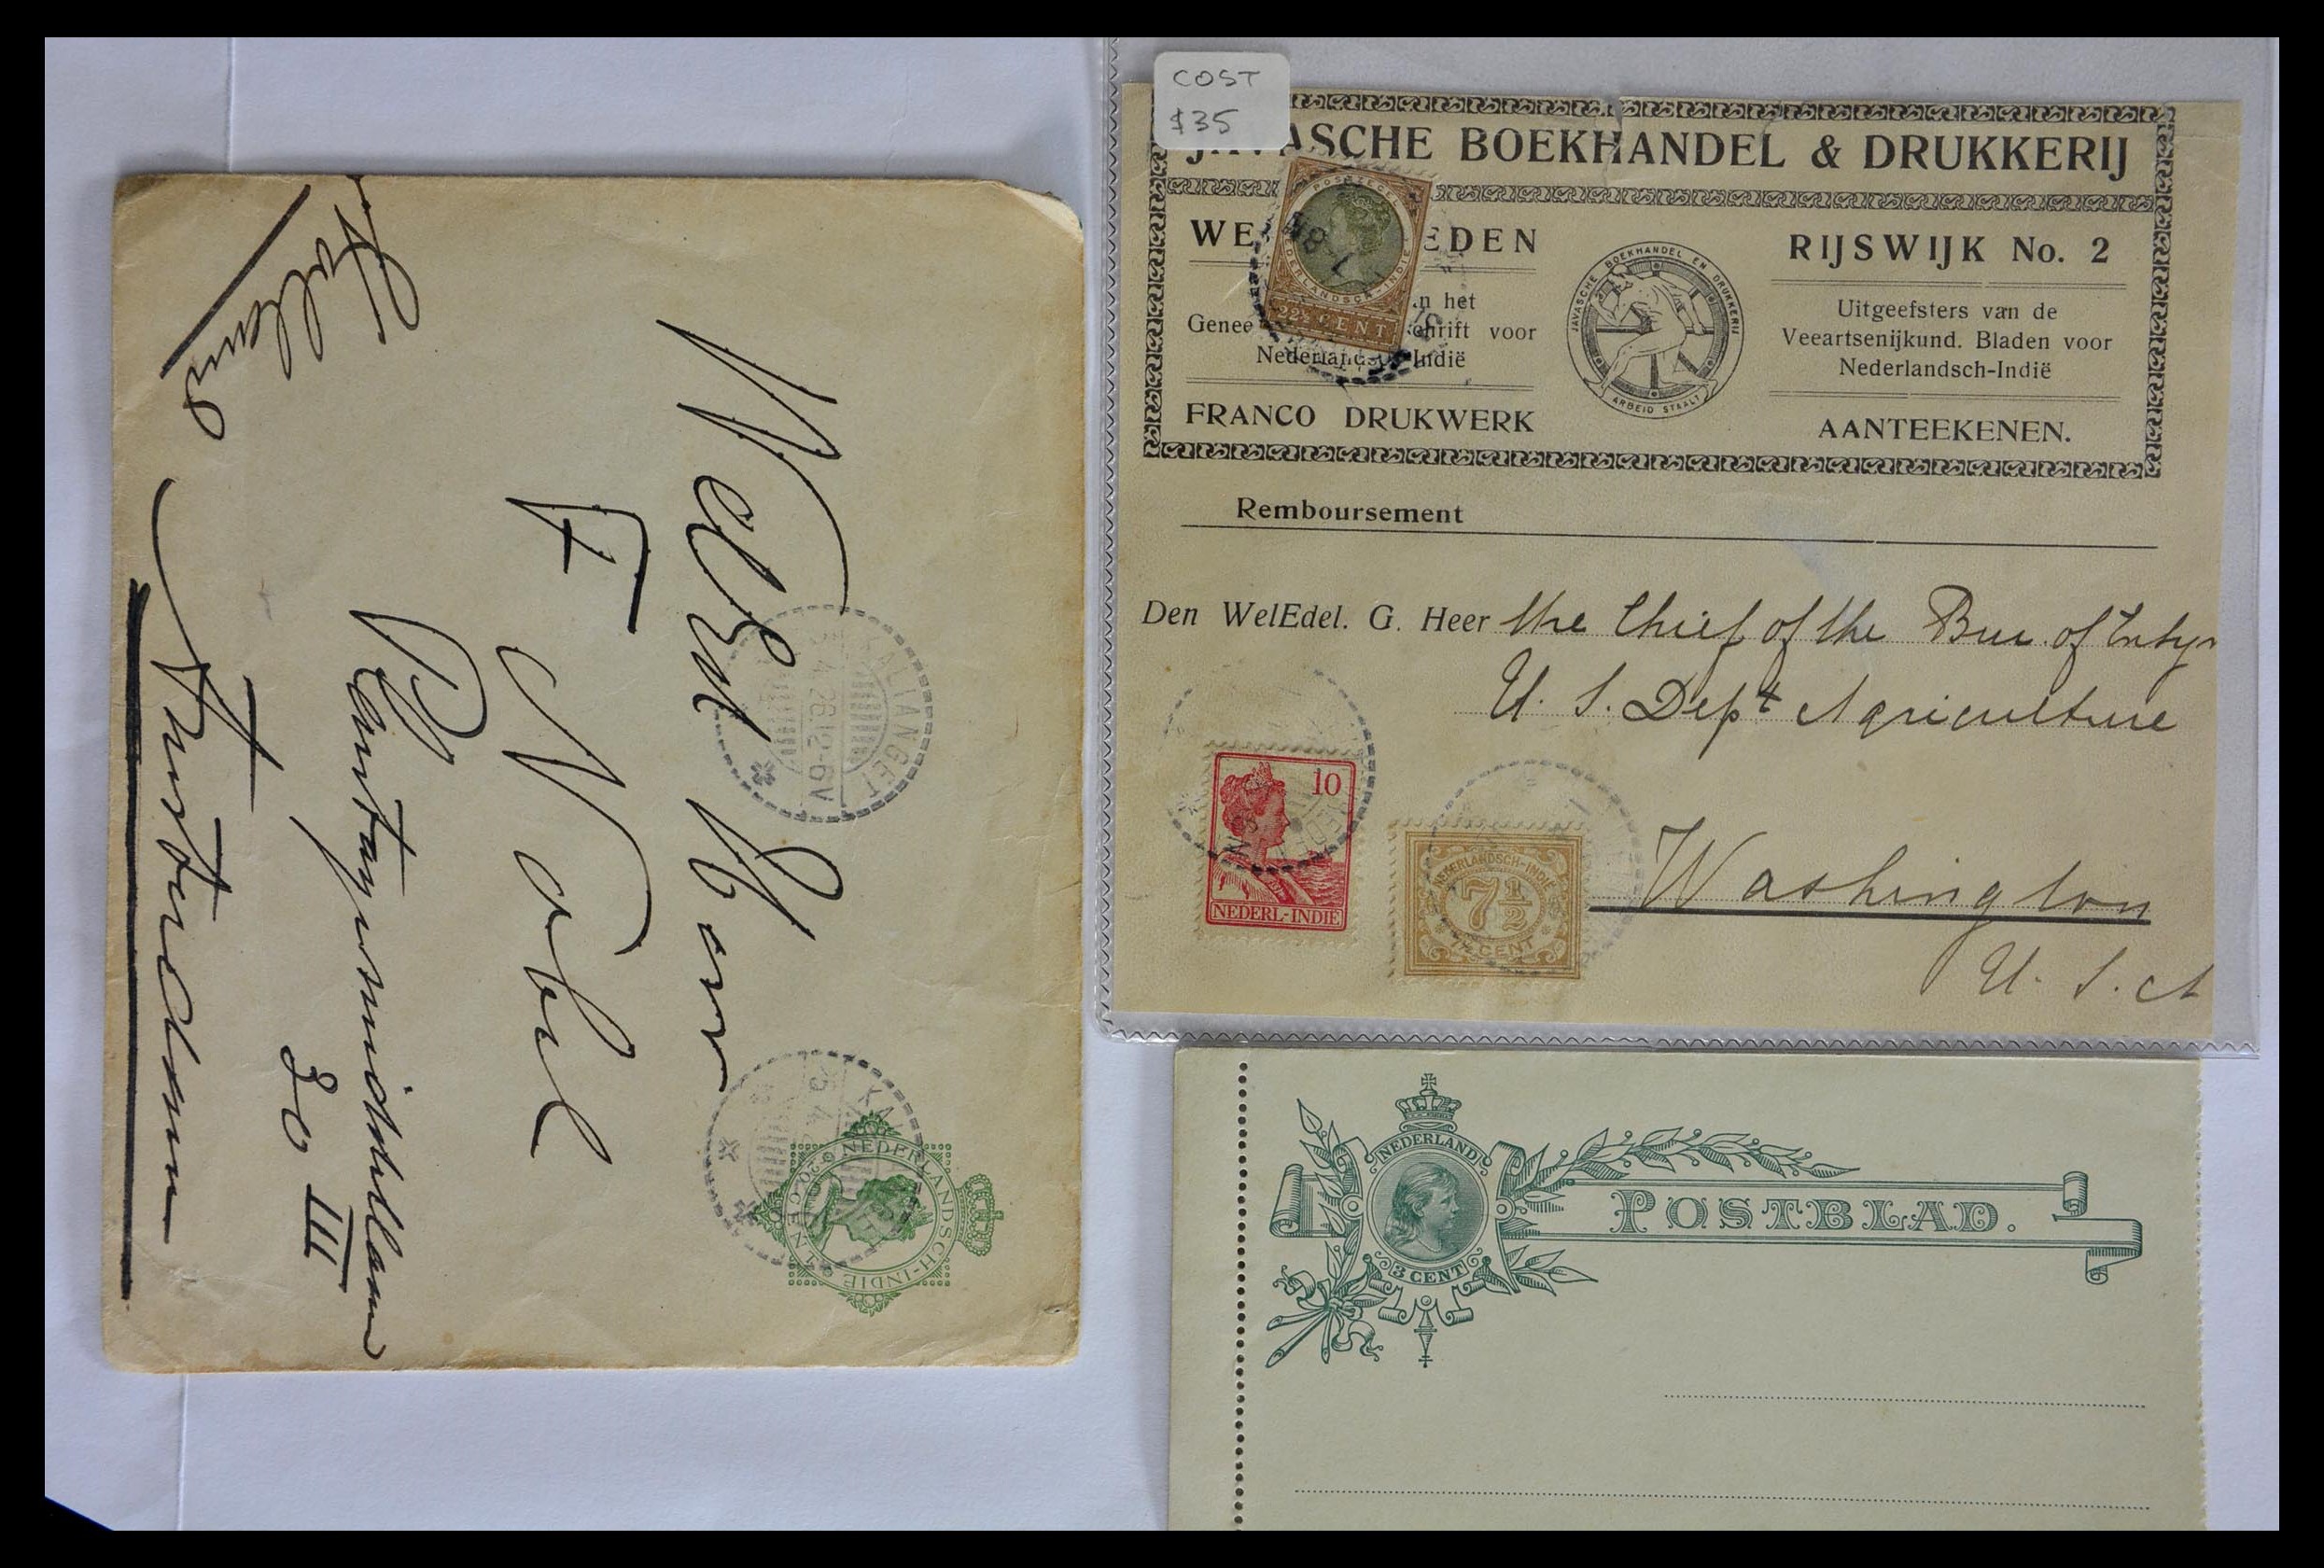 WelEd Heer
F Nobel
Plantagemuidellaan
20 III
Amsterdam
Holland
KALIANGET
5.4.26.12-6V
KALI
5.4
NEDERLANDSCH-INDIE
20 CENT
COST
$35
JAVASCHE BOEKHANDEL & DRUKKERIJ
WE EDEN
n het
Genee chrift voor
Nederlandsch-Indië
FRANCO DRUKWERK
POSTZEGEL
NEDERLANDSCH-INDIE
22½ CENT
JAVASCHE BOEKHANDEL EN DRUKKERIJ
ARBEID STAALT
RIJSWIJK No. 2
Uitgeefsters van de
Veeartsenijkund. Bladen voor
Nederlandsch-Indië
AANTEEKENEN.
Remboursement
Den WelEdel. G. Heer the Chief of the Bur. of Entyr
U. S. Dept Agriculture
Washington
U. S. A
10
NEDERL-INDIË
NEDERLANDSCH-INDIË
7½
7½ CENT
NEDERLAND
3 CENT
POSTBLAD.